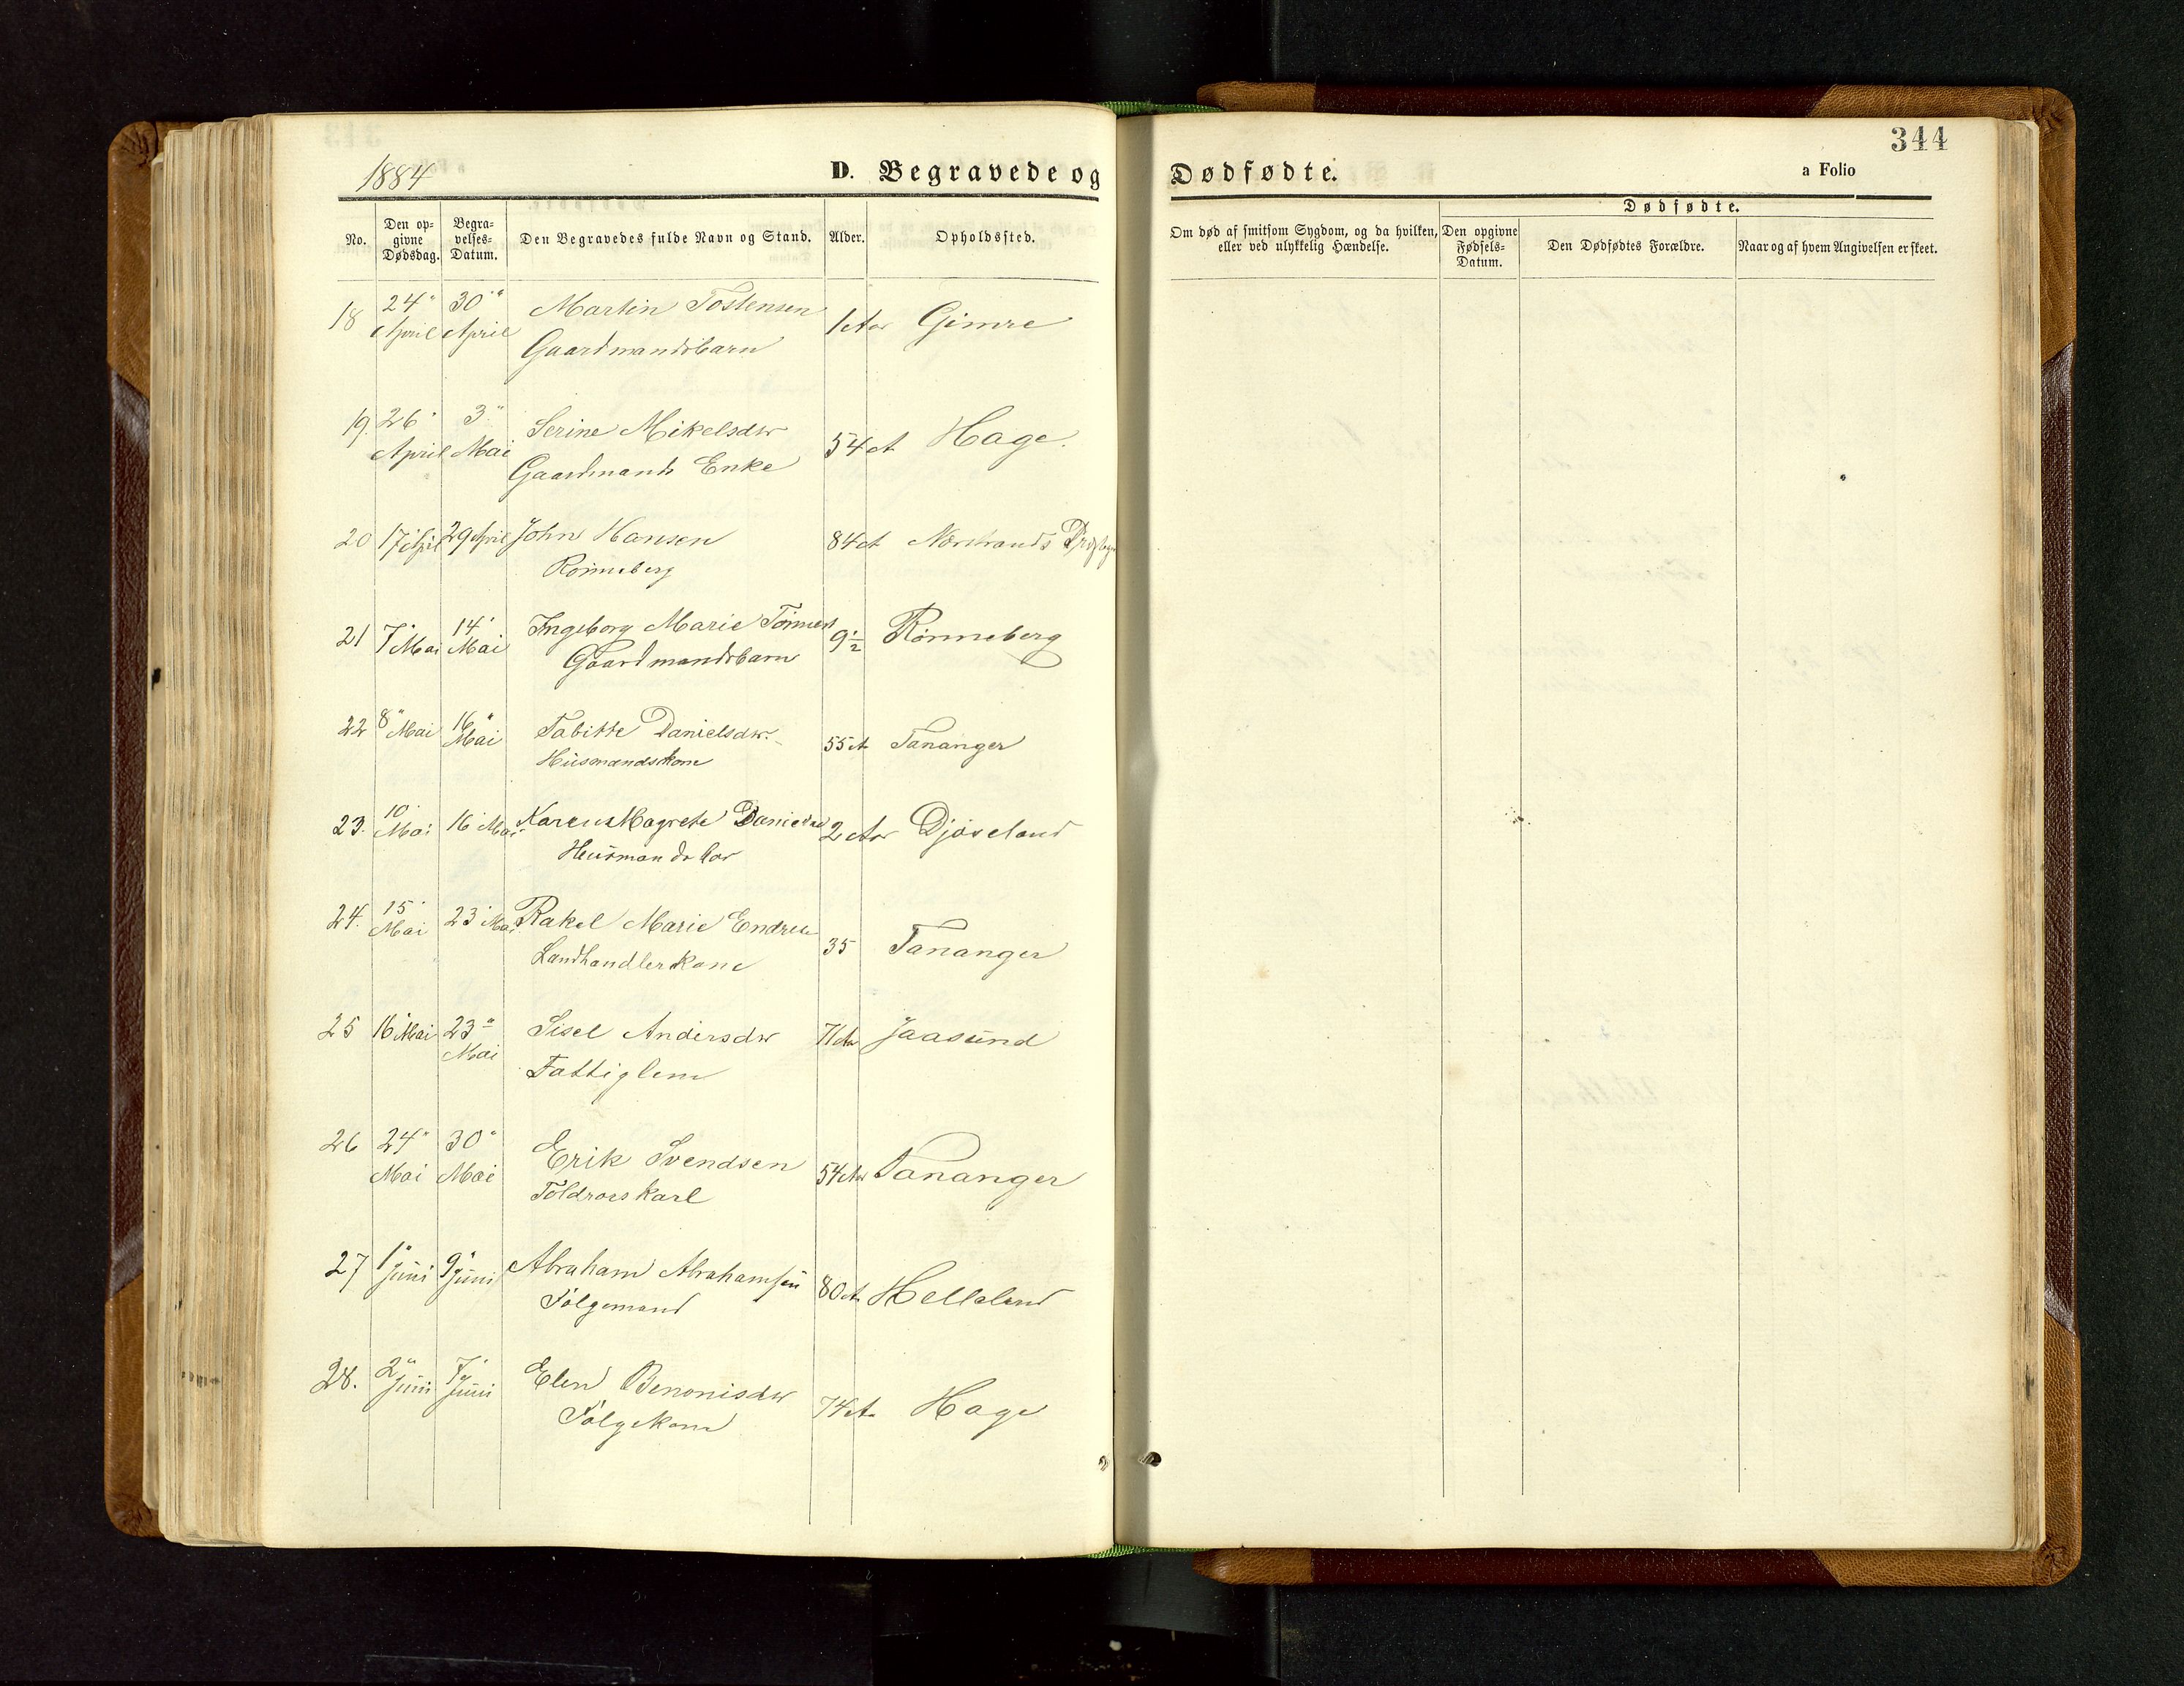 344
1884
D. Begravede og Dødfødte.
a Folio
No.
Den op-
givne
Dødsdag.
Begra-
velses-
Datum.
Den Begravedes fulde Navn og Stand.
Alder.
Opholdssted.
Om død af smitsom Sygdom, og da hvilken,
eller ved ulykkelig Hændelse.
Dødfødte.
Den opgivne
Fødsels-
Datum.
Den Dødfødtes Forældre.
Naar og af hvem Angivelsen er skeet.
18 24" April 30" April Martin Tostensen 1 Aar Gimre
Gaardmandsbarn
19. 26" April 3" Mai Serine Mikelsdtr 54 A Hage.
Gaardmands Enke
20 17 April 29 April John Hansen 84 A Norstrands
Rønneberg
21 7" Mai 14" Mai Ingeborg Marie 9 1/2 Rønneberg
Gaardmandsbarn
22 8" Mai 16" Mai Tabitte Danielsdtr. 55 A Tananger
Huusmandskone
23. 10 Mai 16 Mai Karen Magrete 2 Aar
Huusmands
24. 15" Mai 23" Mai Rakel Marie 35 Tananger
Landhandlerkone
25 16 Mai 23" Mai Sisel Andersdtr 71 Aar Jaasund
Fattiglem
26 24" Mai 30" Mai Erik Svendsen 54 Aar Tananger
Toldroerskarl
27 1" Juni 9" Juni Abraham Abrahamsen 80 A. Helleland
Følgemand
28. 2" Juni 7" Juni Elen Benonisdtr 74 A. Hage
Følgekone